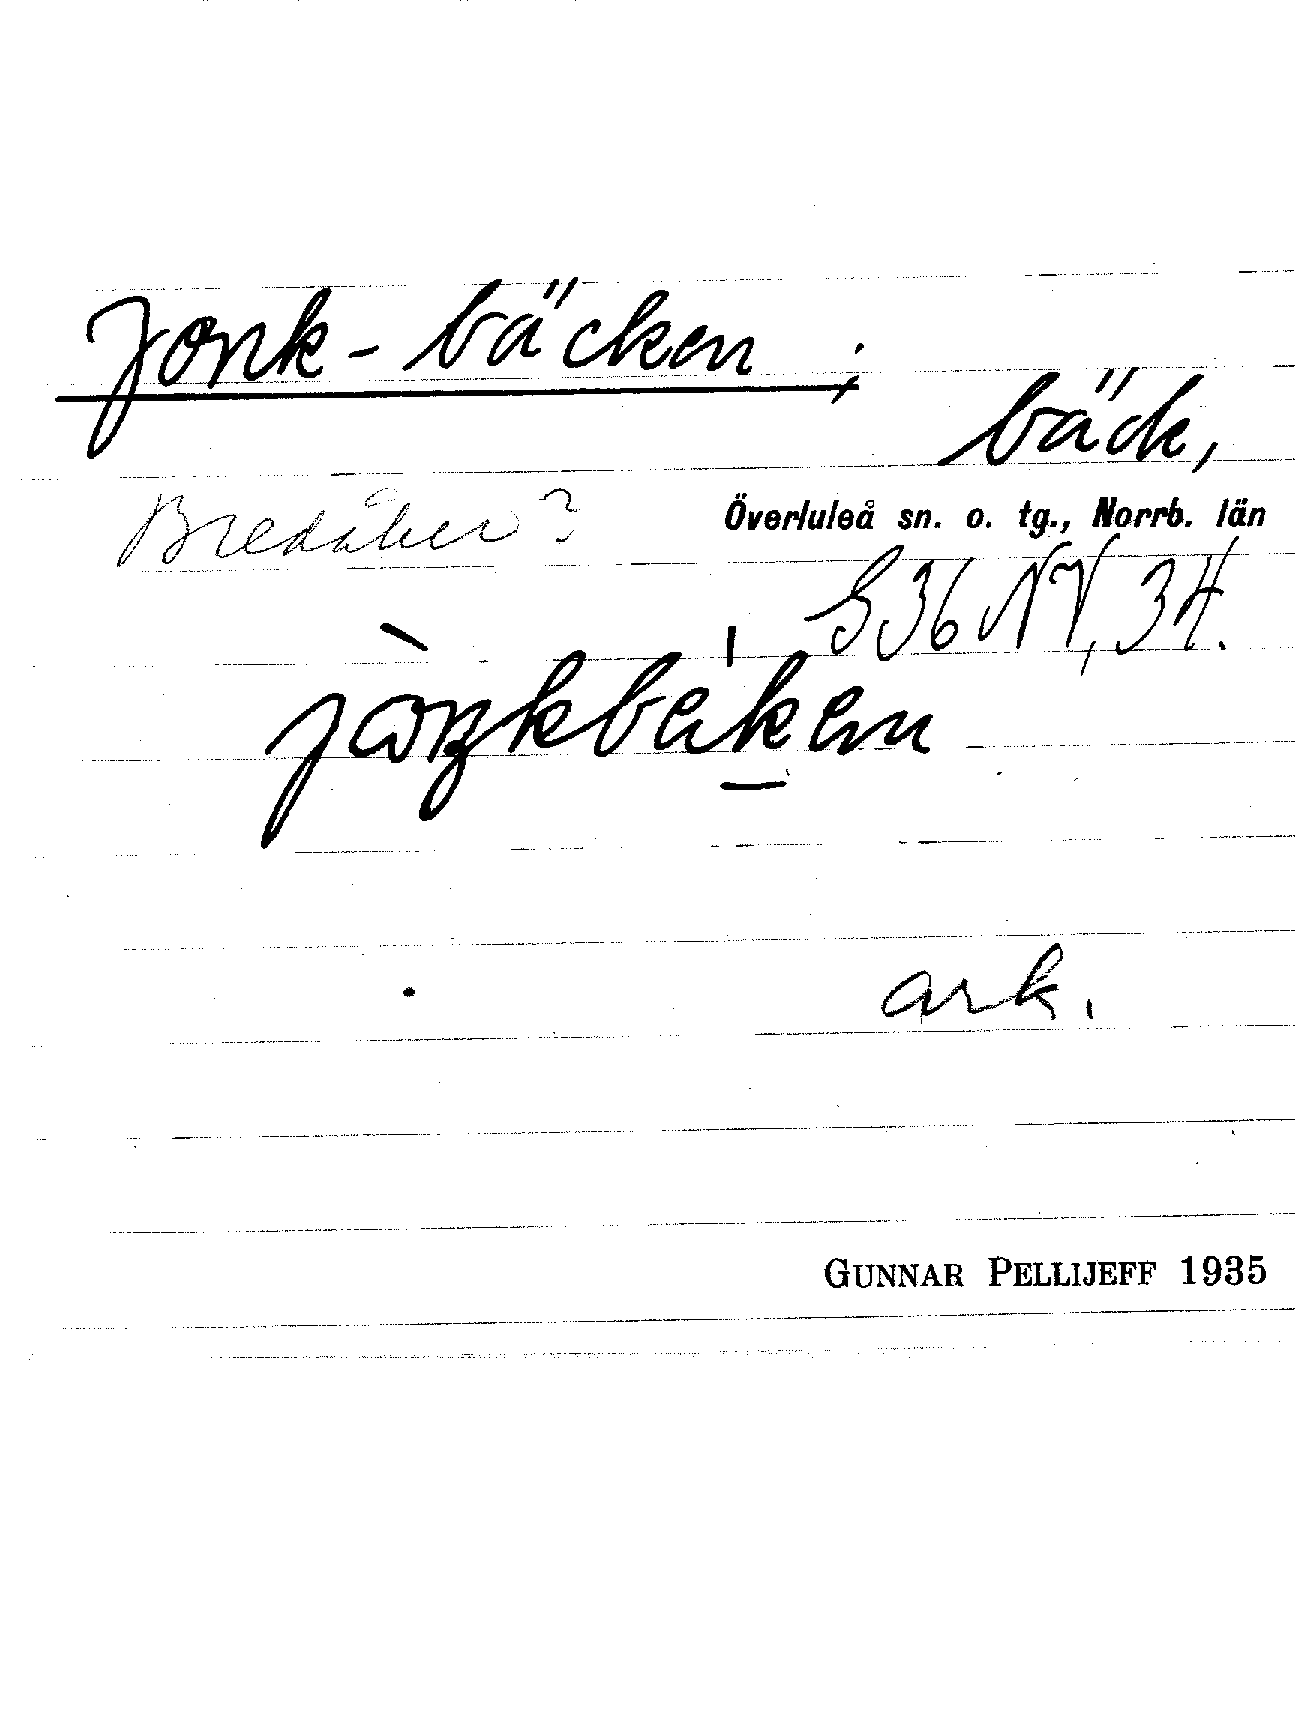 Jonk-bäcken;
bäck,
Bredåker?
Överluleå sn. o. tg., Norrb. län
S 36 NV, 34.
ark.
GUNNAR PELLIJEFF 1935